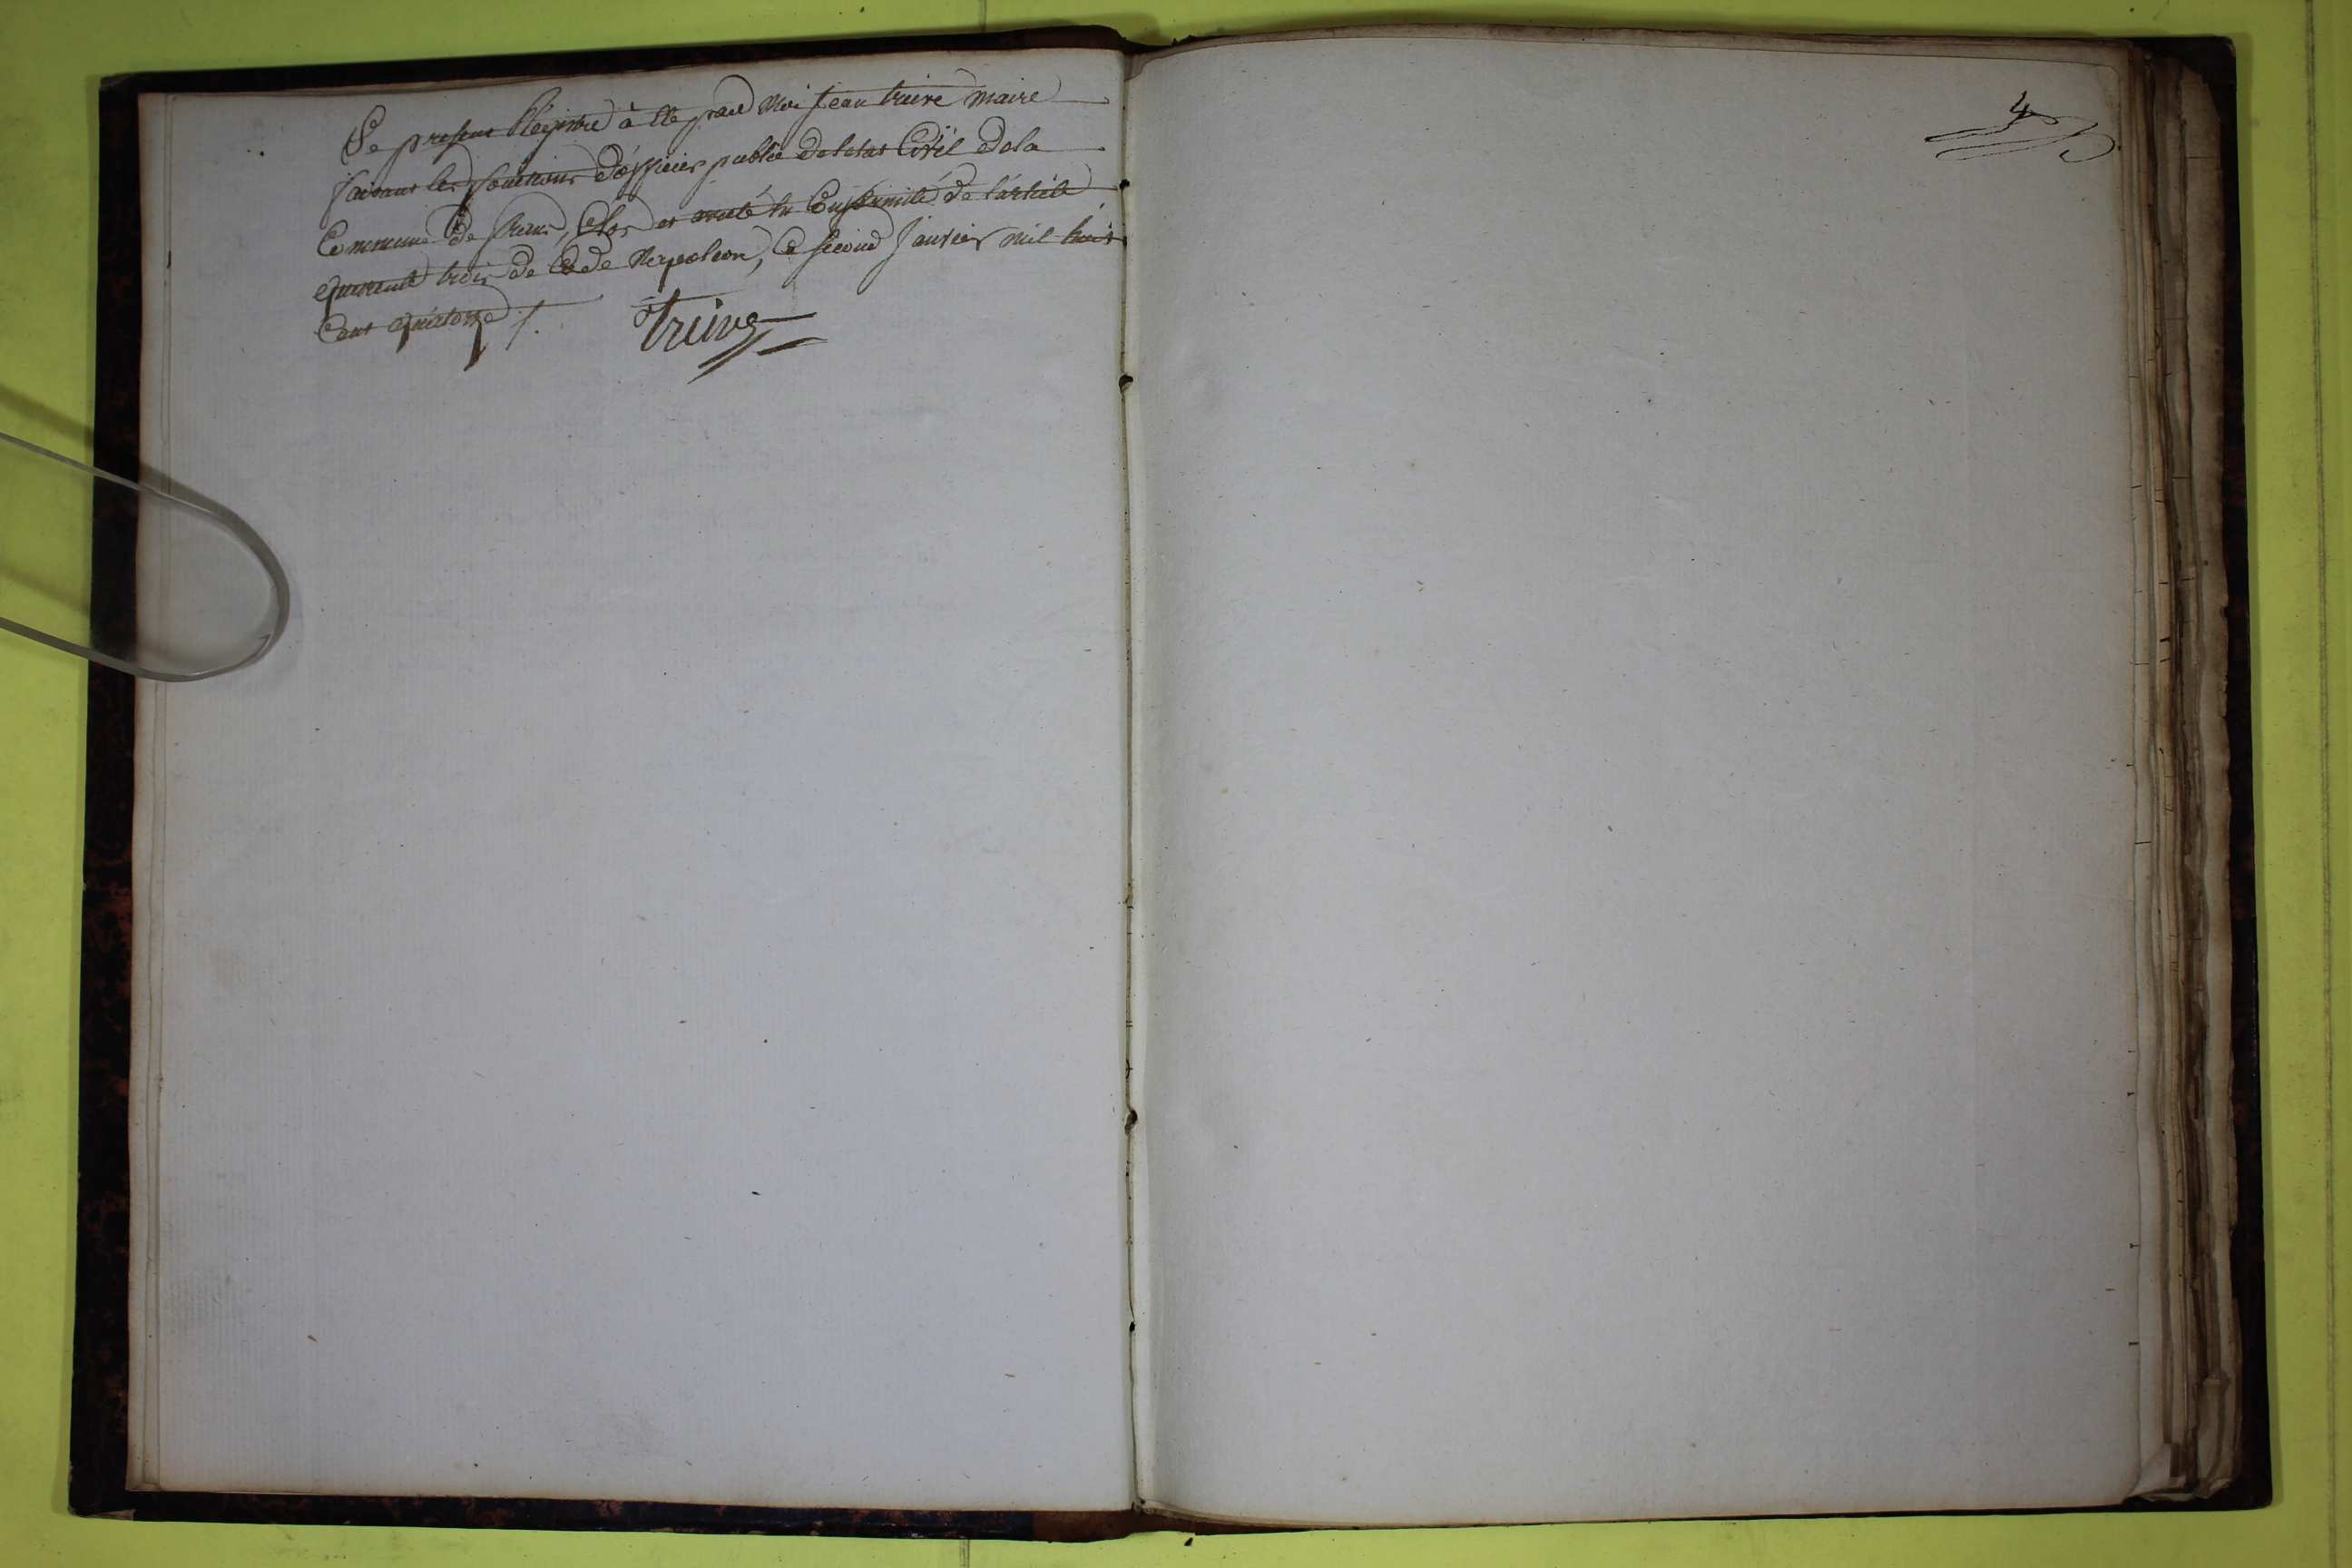 Le present Régistre à ete par Moi Jean truve maire
faisant les fonctions d'officier public de letat Civil dela
Commune de , Clos et areté en Conformité de l'article
quarente trois de Code Napoleon, ce second Janvier mil huit
Cent quatorze /.
truve
4